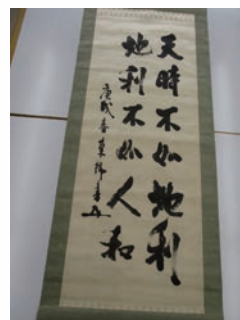 天時不如地利
地利不如人和
庚戌春